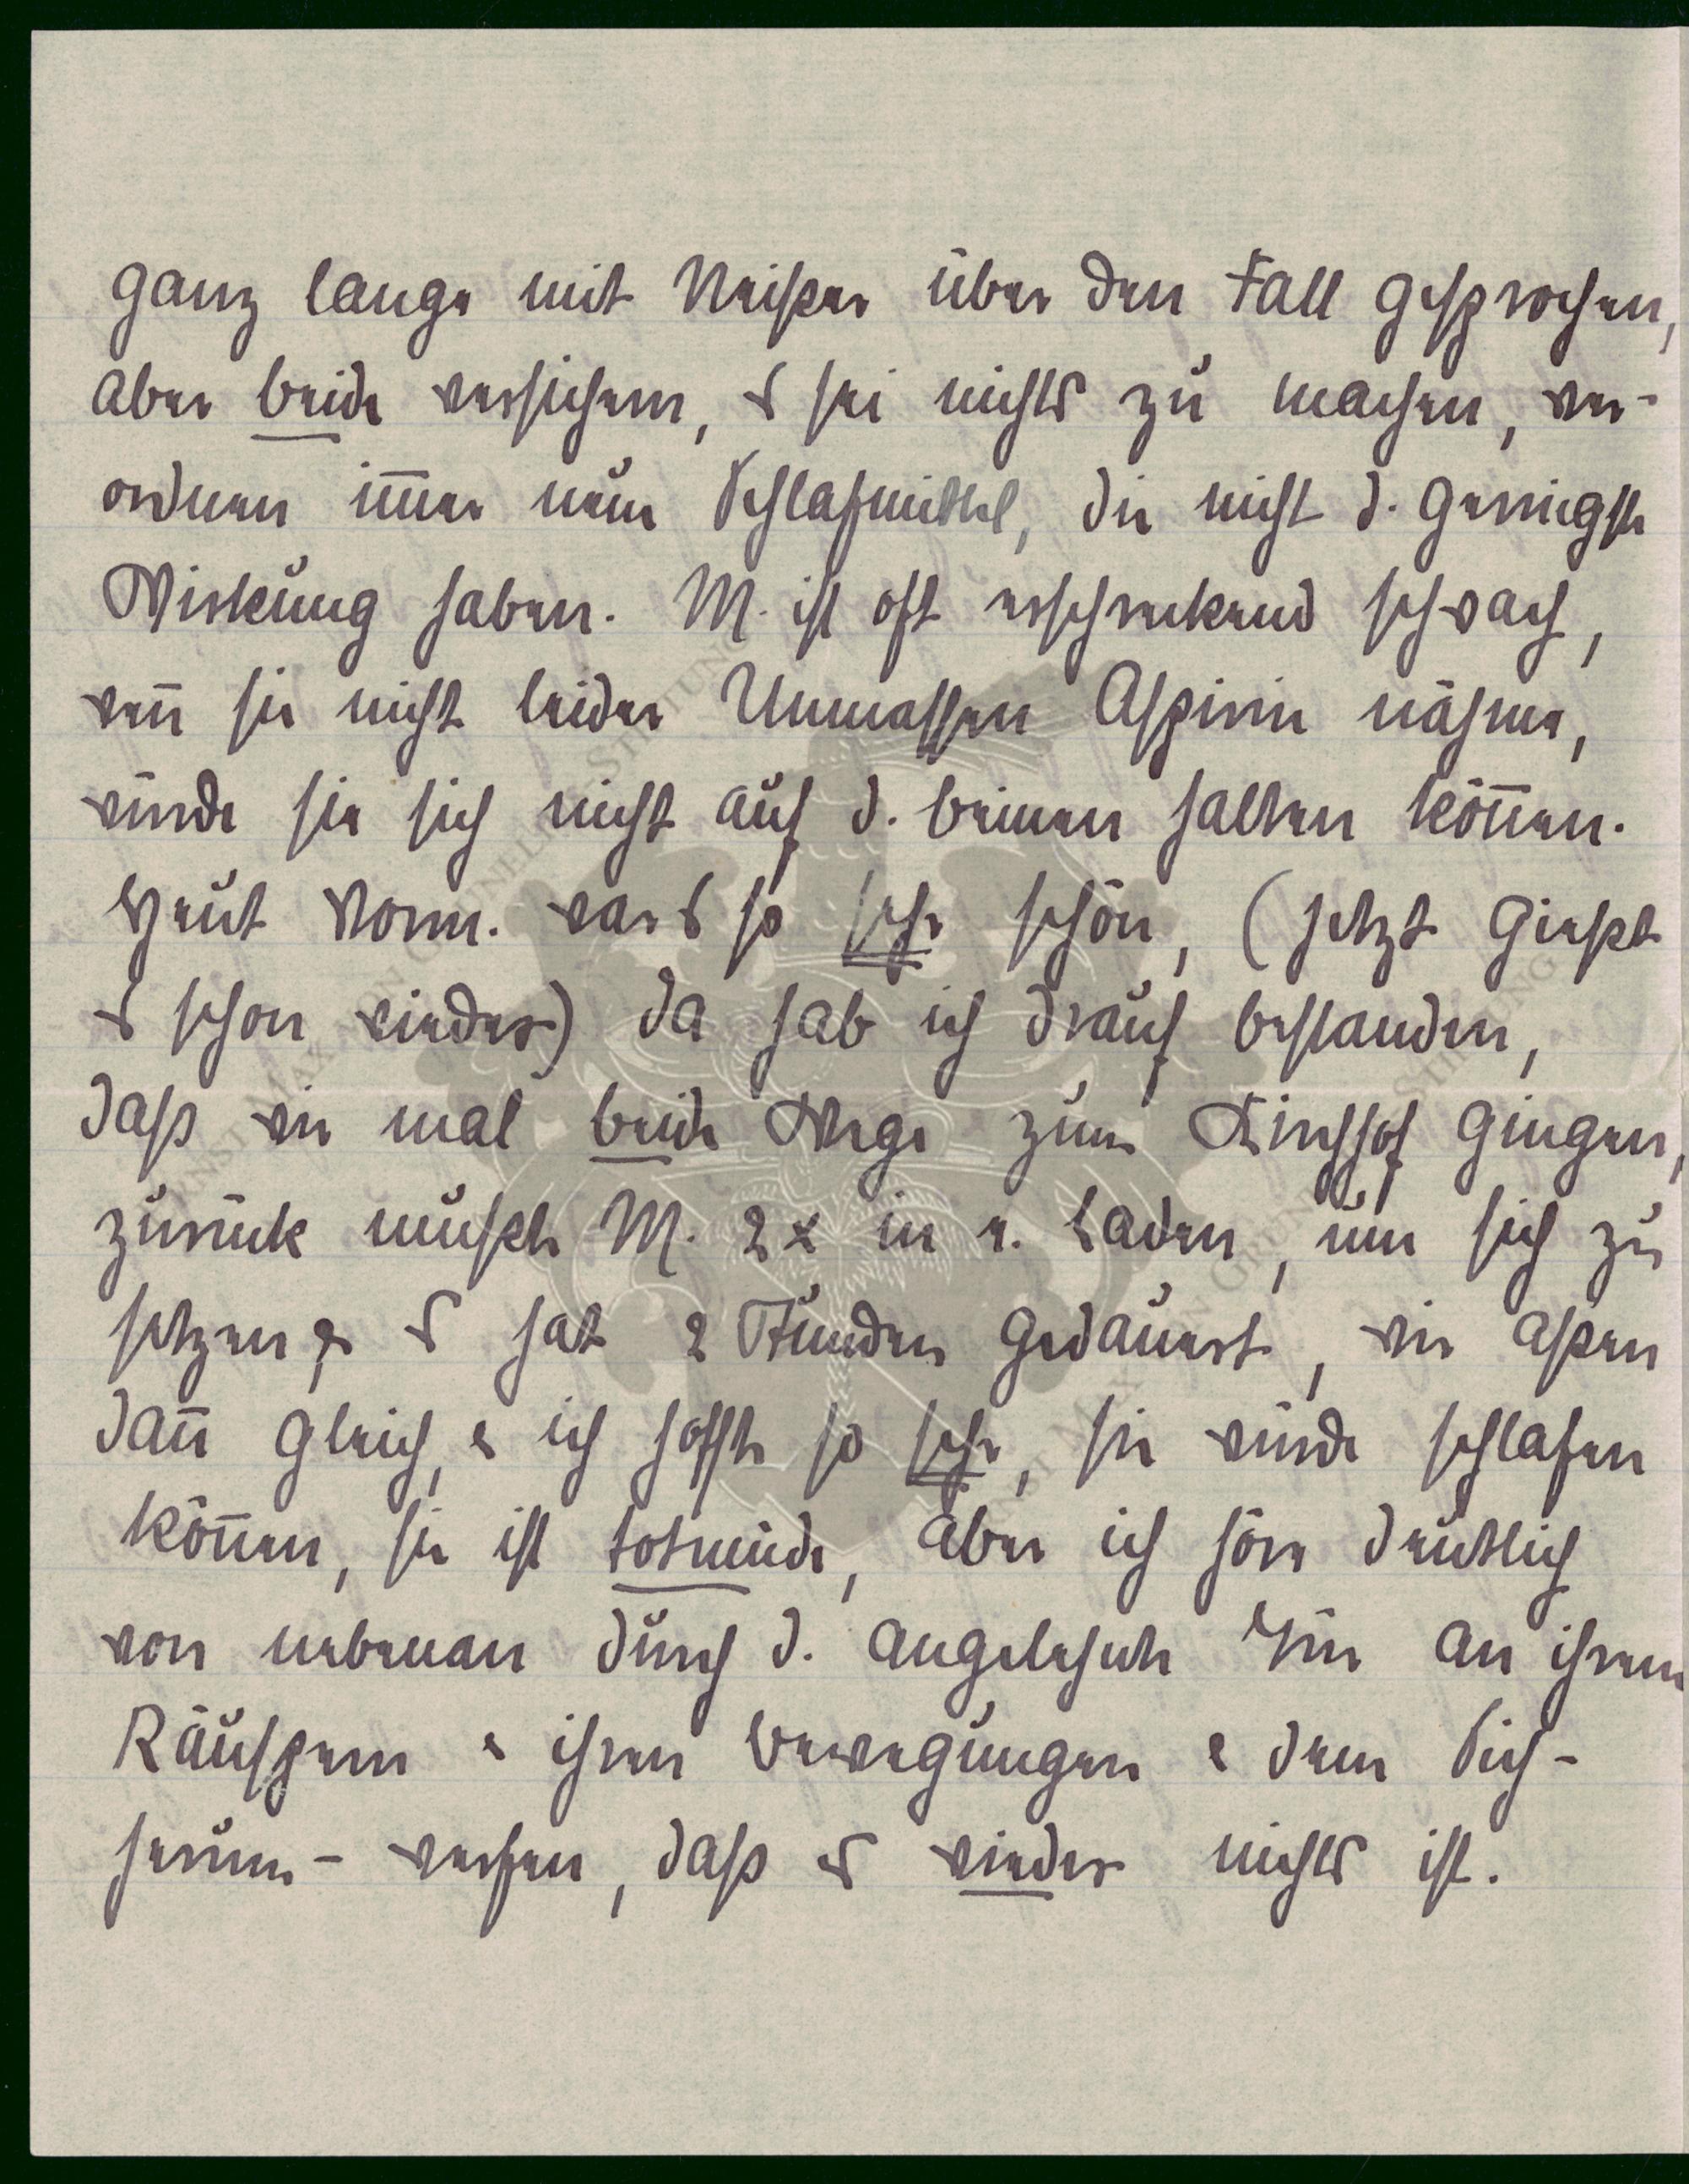 ganz lange mit Neisser über den Fall gesprochen,
aber beide versichern, es sei nichts zu machen, ver-
ordnen im̄er neue Schlafmittel, die nicht d. geringste
Wirkung haben. M. ist oft erschreckend schwach,
wen̄ sie nicht leider Unmassen Aspirin nähme,
würde sie sich nicht auf d. Beinen halten kön̄en.
Heut Vorm. war es so sehr schön, (jetzt giesst
es schon wieder) da hab ich drauf bestanden,
dass wir mal beide Wege zum Kirchhof gingen,
zurück musste M. 2x in e. Laden, um sich zu
setzen, & es hat 2 Stunden gedauert, wir assen
dan̄ gleich, & ich hoffte so sehr, sie würde schlafen
kön̄en, sie ist totmüde, aber ich höre deutlich
von nebenan durch d. angelehnte Tür an ihrem
Räuspern & ihren Bewegungen & dem Sich-
herum-werfen, dass es wieder nichts ist.